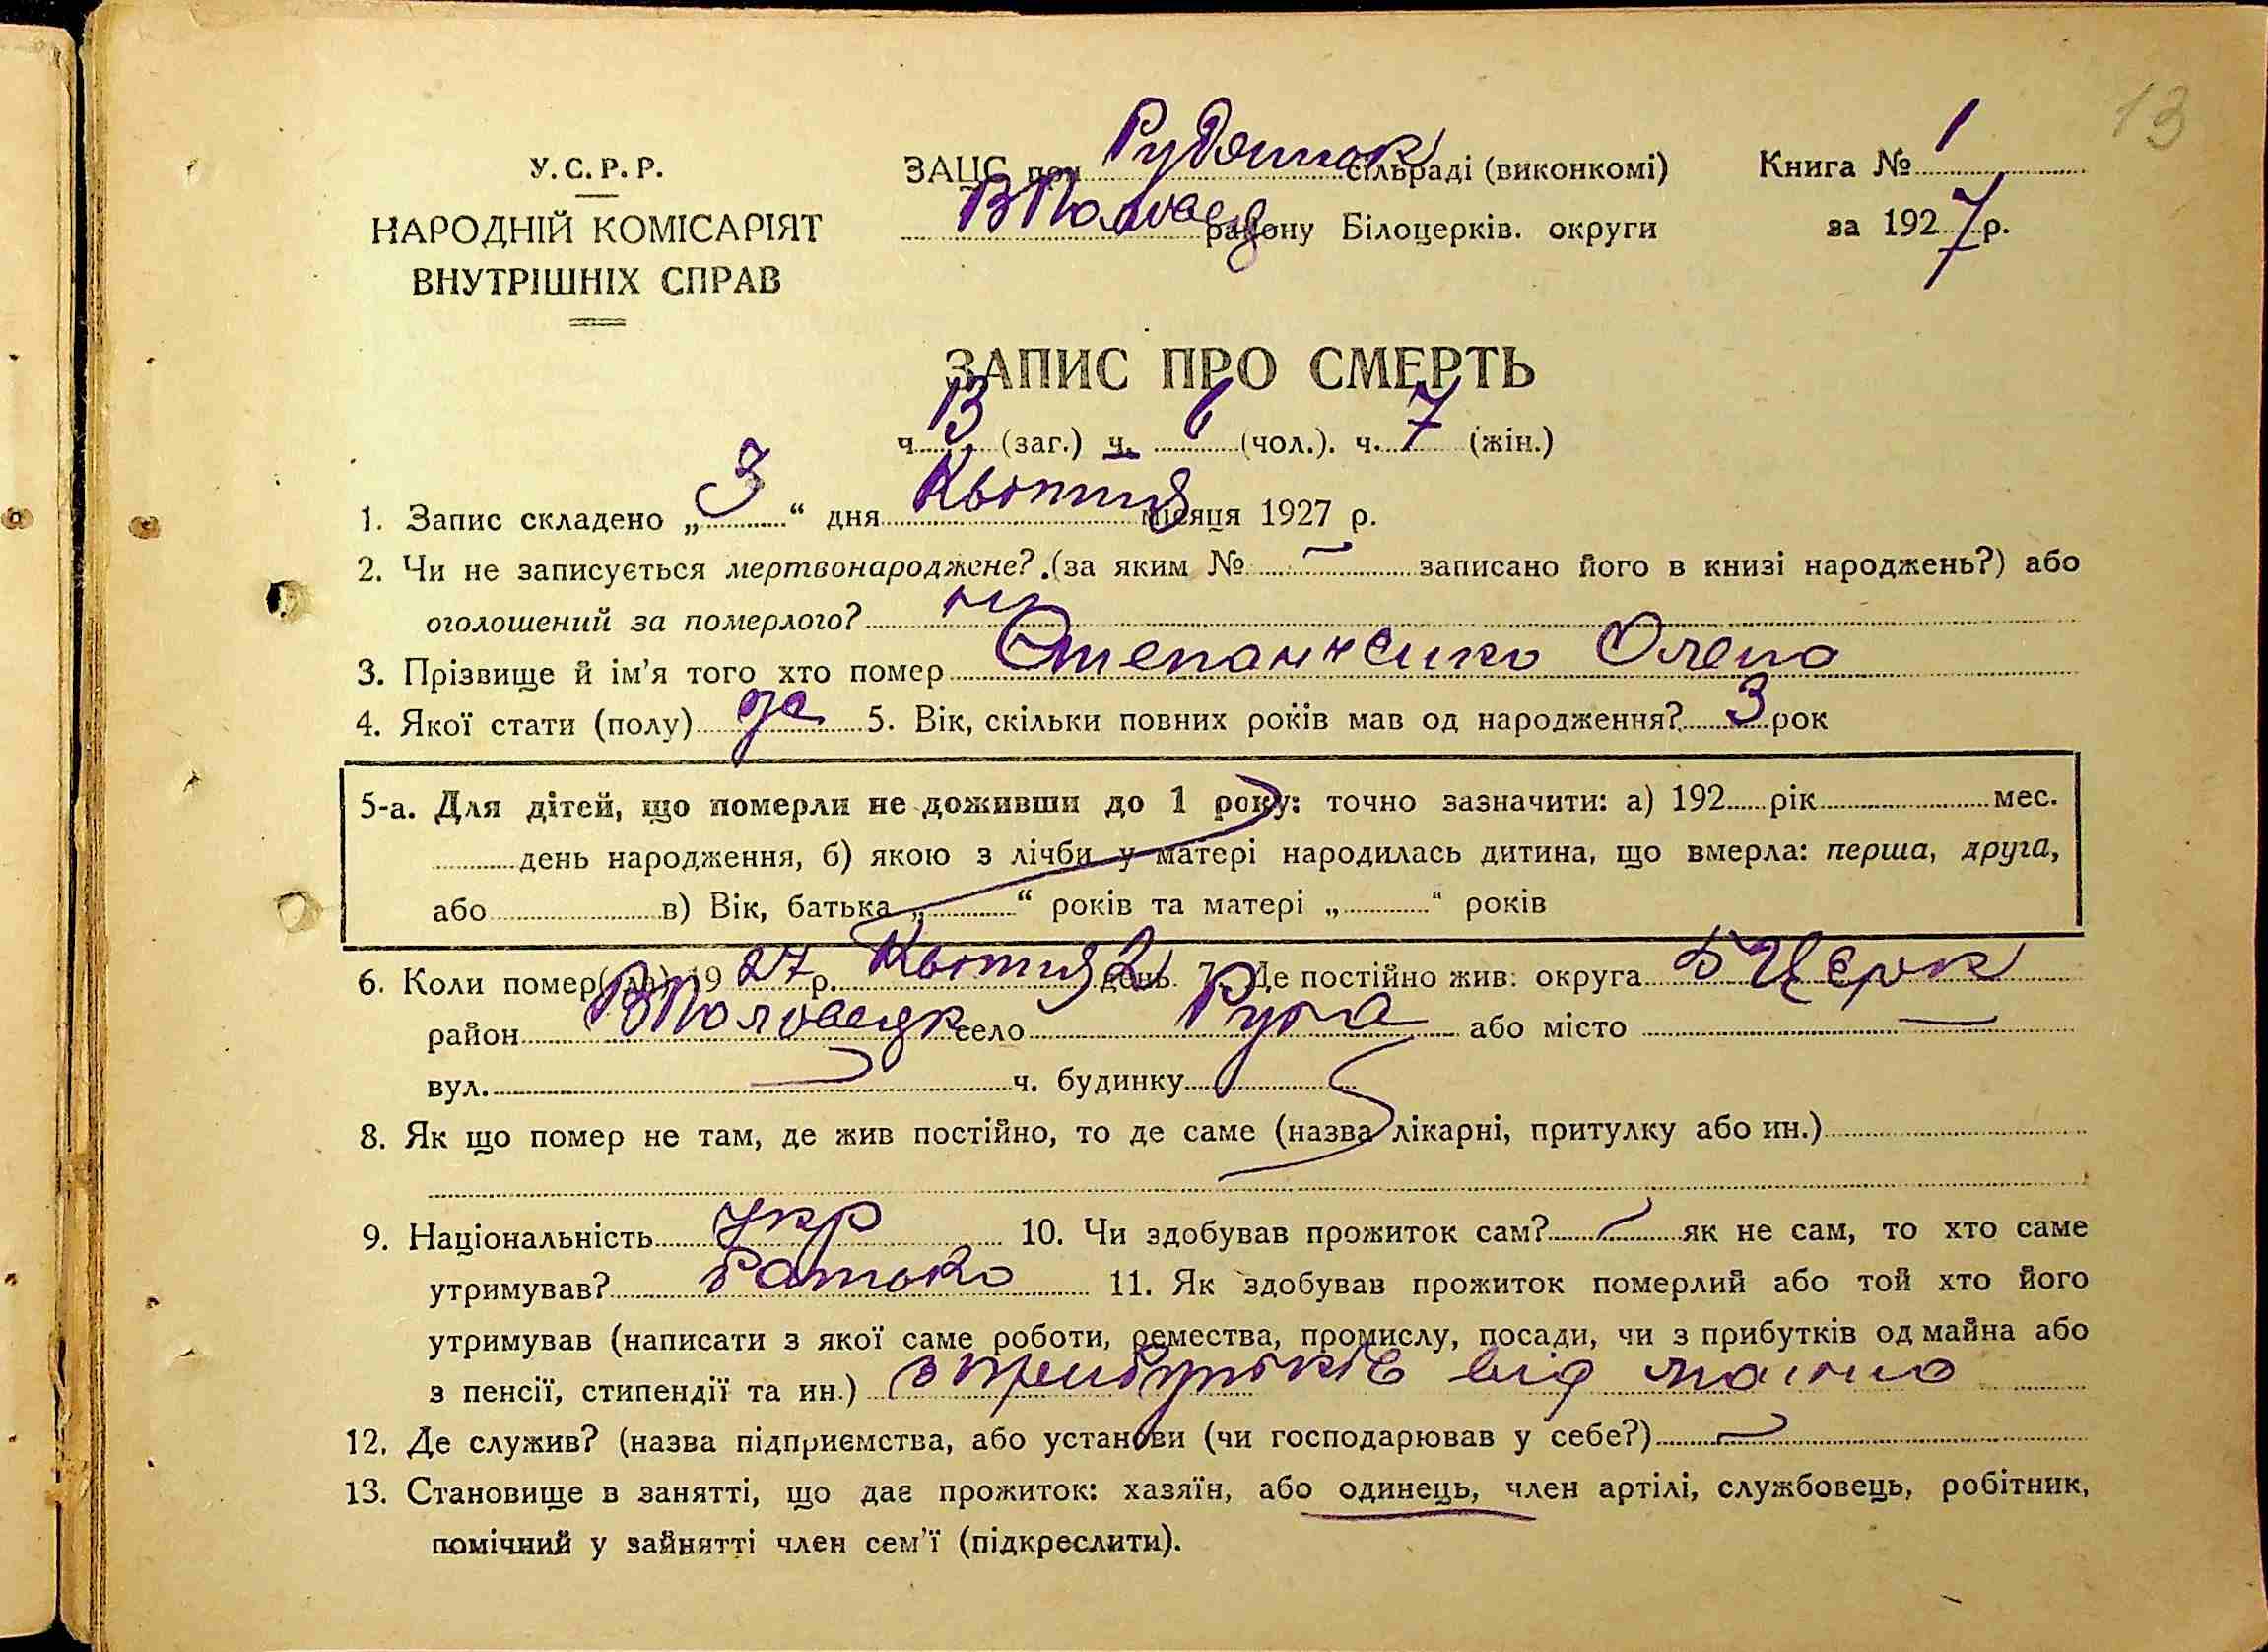 13
У.С.Р.Р.
НАРОДНІЙ КОМІСАРІЯТ
ВНУТРІШНІХ СПРАВ
ЗАЦС при сільраді (виконкомі)
району Білоцерків. округи
Книга № 1
за 1927 р.
ЗАПИС ПРО СМЕРТЬ
ч. 13 (заг.) ч. 6 (чол.). ч. 7 (жін.)
1. Запис складено „ 3 “ дня Квітня місяця 1927 р.
2. Чи не записується мертвонароджене? (за яким № — записано його в книзі народжень?) або
оголошений за померлого? ні
3. Прізвище й ім'я того хто помер Степаненко Олена
4. Якої стати (полу) же 5. Вік, скільки повних років мав од народження? 3 рок
5-а. Для дітей, що померли не доживши до 1 року: точно зазначити: а) 192 рік мес.
день народження, б) якою з лічби у матері народилась дитина, що вмерла: перша, друга,
або в) Вік, батька „ “ років та матері „ “ років
6. Коли помер(ла) 1927 р. Квітня 2 день 7. Де постійно жив: округа БЦерк
район ВПоловецьк село Руда або місто —
вул. ч. будинку
8. Як що помер не там, де жив постійно, то де саме (назва лікарні, притулку або ин.)
9. Національність укр 10. Чи здобував прожиток сам? — як не сам, то хто саме
утримував? батько 11. Як здобував прожиток померлий або той хто його
утримував (написати з якої саме роботи, ремества, промислу, посади, чи з прибутків од майна або
з пенсії, стипендії та ин.) з прибутків від майна
12. Де служив? (назва підприємства, або установи (чи господарював у себе?) —
13. Становище в занятті, що дає прожиток: хазяїн, або одинець, член артілі, службовець, робітник,
помічний у зайнятті член сем'ї (підкреслити).